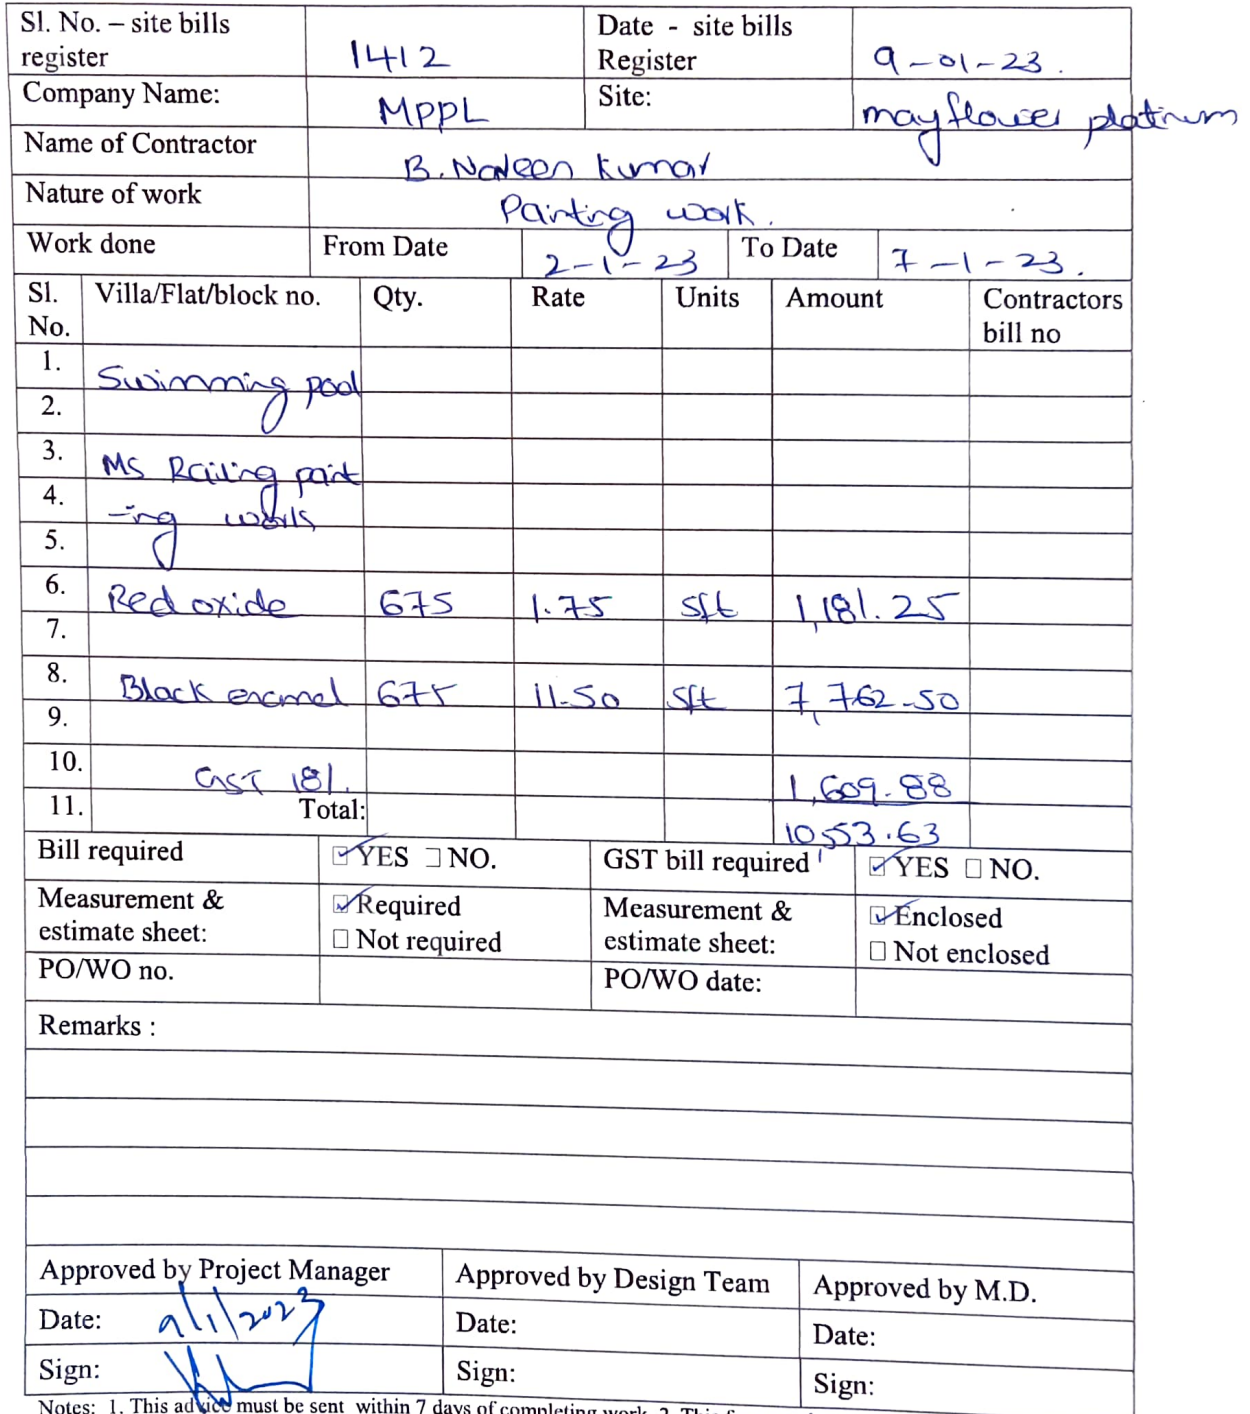 Sl. No. – site bills register 1412 Date - site bills Register 9-01-23.
Company Name: MPPL Site: mayflower platinum
Name of Contractor B. Naveen Kumar
Nature of work Painting work.
Work done From Date 2-1-23 To Date 7-1-23.
Sl. No. Villa/Flat/block no. Qty. Rate Units Amount Contractors bill no
1. Swimming pool
2.
3. MS Railing paint
4. -ing work
5.
6. Red oxide 675 1.75 sft 1,181.25
7.
8. Black enamel 675 11.50 sft 7,762.50
9.
10. GST 18%. 1,609.88
11. Total: 10,553.63
Bill required YES NO. GST bill required YES NO.
Measurement & estimate sheet: Required Not required Measurement & estimate sheet: Enclosed Not enclosed
PO/WO no. PO/WO date:
Remarks :
Approved by Project Manager Approved by Design Team Approved by M.D.
Date: 9/1/2023 Date: Date:
Sign: Sign: Sign:
Notes: 1. This advice must be sent within 7 days of completing work. 2. This